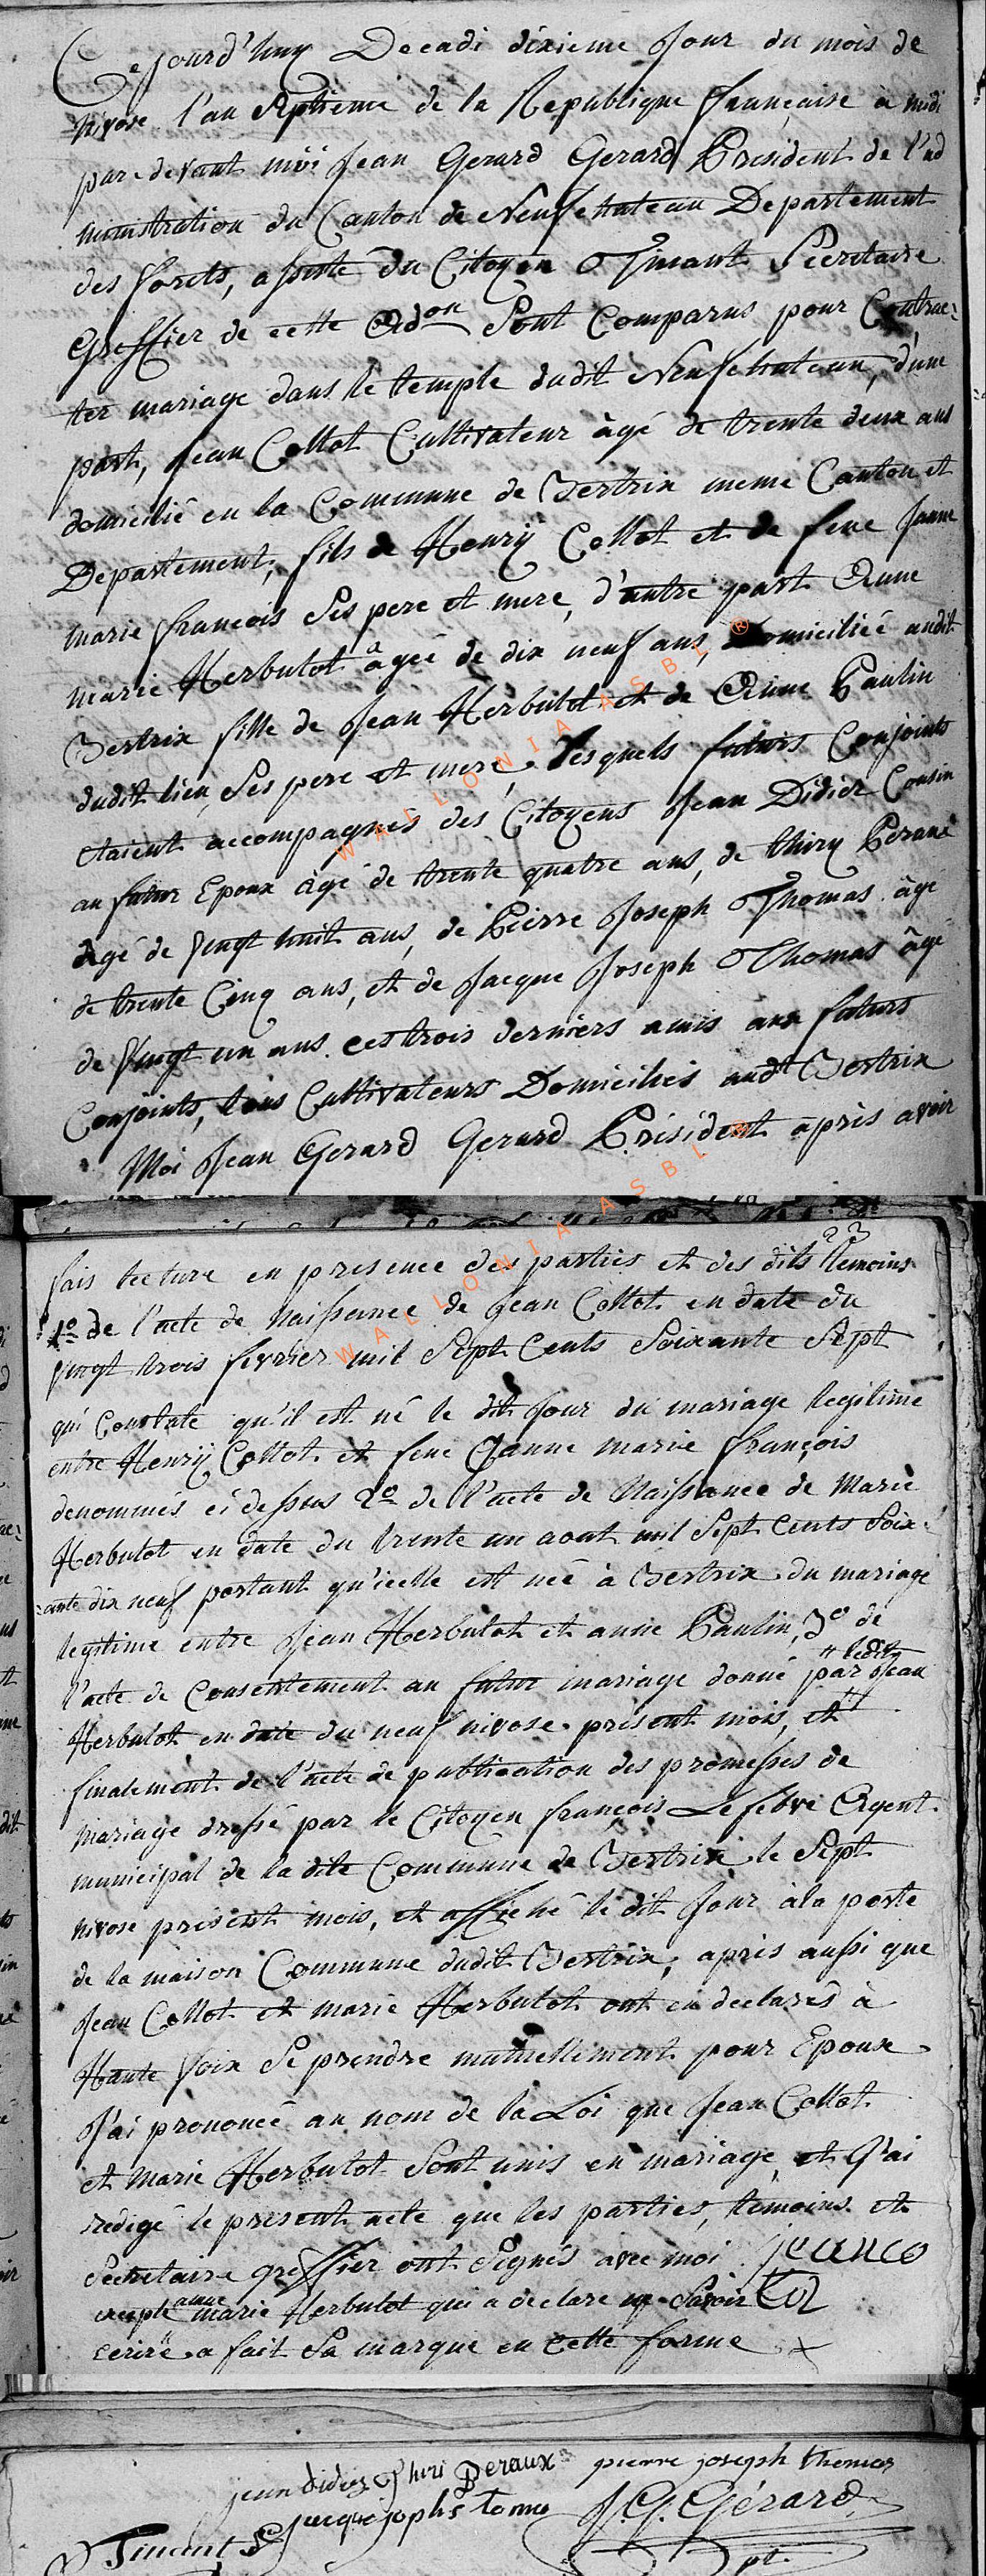 Cejourd'huy Decadi dixieme jour du mois de
nivose l'an Septieme de la Republique française à midi
par-devant moi Jean Gerard Gerard President de l'ad
ministration du Canton de Neufchateau Departement
des forets, assisté du Citoyen Tinant Secretaire
Greffier de cette Adon Sont Comparus pour Contrac=
ter mariage dans le temple dudit Neufchateau, d'une
part, Jean Collot Cultivateur âgé de trente deux ans
domicilié en la Commune de Bertrix meme Canton et
Departement, fils de Henrÿ Collot et de feue Janne
marie françois Ses pere et mere, d'autre part Anne
marie Herbulot âgée de dix neuf ans, Domiciliée audit
Bertrix fille de Jean Herbulot et de Anne Paulin
dudit lieu, Ses pere et mere, Lesquels futurs Conjoints
etaient accompagnés des Citoyens Jean Didier Cousin
au futur Epoux âgé de trente quatre ans, de thiry Peraux
âgé de Vingt huit ans, de Pierre Joseph Thomas âgé
de trente Cinq ans, et de Jacque Joseph Thomas âgé
de Vingt un ans. ces trois derniers amis aux futurs
Conjoints, tous Cultivateurs Domiciliés audt Bertrix
Moi Jean Gerard Gerard Président après avoir
23
fais lecture en presence des parties et des dits temoins
1o de l'acte de Naissance de Jean Collot en date du
vingt trois fevrier mil Sept Cents Soixante Sept
qui Constate qu'il est né le dit Jour du mariage legitime
entre Henrÿ Collot et feue Janne marie françois
denommés ci dessus 2o de l'acte de Naissance de Marie
Herbulot en date du trente un aout mil Sept Cents Soix=
=ante dix neuf portant qu'icelle est née à Bertrix du mariage
legitime entre Jean Herbulot et anne Paulin, 3o de
l'acte de Consentement au futur mariage donné par " ledit Jean
Herbulot en date du neuf nivose present mois, et
finalement de l'acte de publication des promesses de
Mariage dressé par le Citoyen françois Lefebvre Agent
municipal de la dite Commune de Bertrix le Sept
nivose présent mois, et affiché le dit Jour à la porte
de la maison Commune dudit Bertrix, apres aussi que
Jean Collot et marie Herbulot ont eu declarés à
Haute Voix Se prendre mutuellement pour Epoux
J'ai prononcé au nom de la Loi que Jean Collot
et Marie Herbulot Sont unis en mariage, et J'ai
redigé le present acte que les parties, temoins et
Secretaire greffier ont Signés avec moi jean co
excepté anne marie Herbulot qui a declare ne Savoir llot
ecrire a fait Sa marque en cette forme x
jean didier thiri Peraux pierre joseph thomas
jacque josephs tomas J. G. Gérard
Tinant S pt.
WALLONIA ASBL ®
WALLONIA ASBL ®